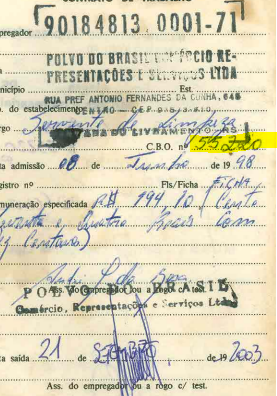 CONTRATO DE TRABALHO
90184813 0001-71
pregador
POLVO DO BRASIL COMÉRCIO RE-
PRESENTAÇÕES E SERVIÇOS LTDA
nicípio Est.
RUA PREF ANTONIO FERNANDES DA CUNHA, 645
do estabelecimento CENTRO - CEP
rgo Servente de limpeza
DO LIVRAMENTO-RS
C.B.O. nº 55220
ta admissão 08 de de 1998
gistro nº Fls/Ficha FICHA
muneração especificada R$ 194,10 (Cento
e quatro Reais com
dez Centavos)
Ass. do empregador ou a rogo c/ test.
POLVO DO BRASIL
Comércio, Representações e Serviços Ltda
ta saída 21 de SETEMBRO de 2003
Ass. do empregador ou a rogo c/ test.